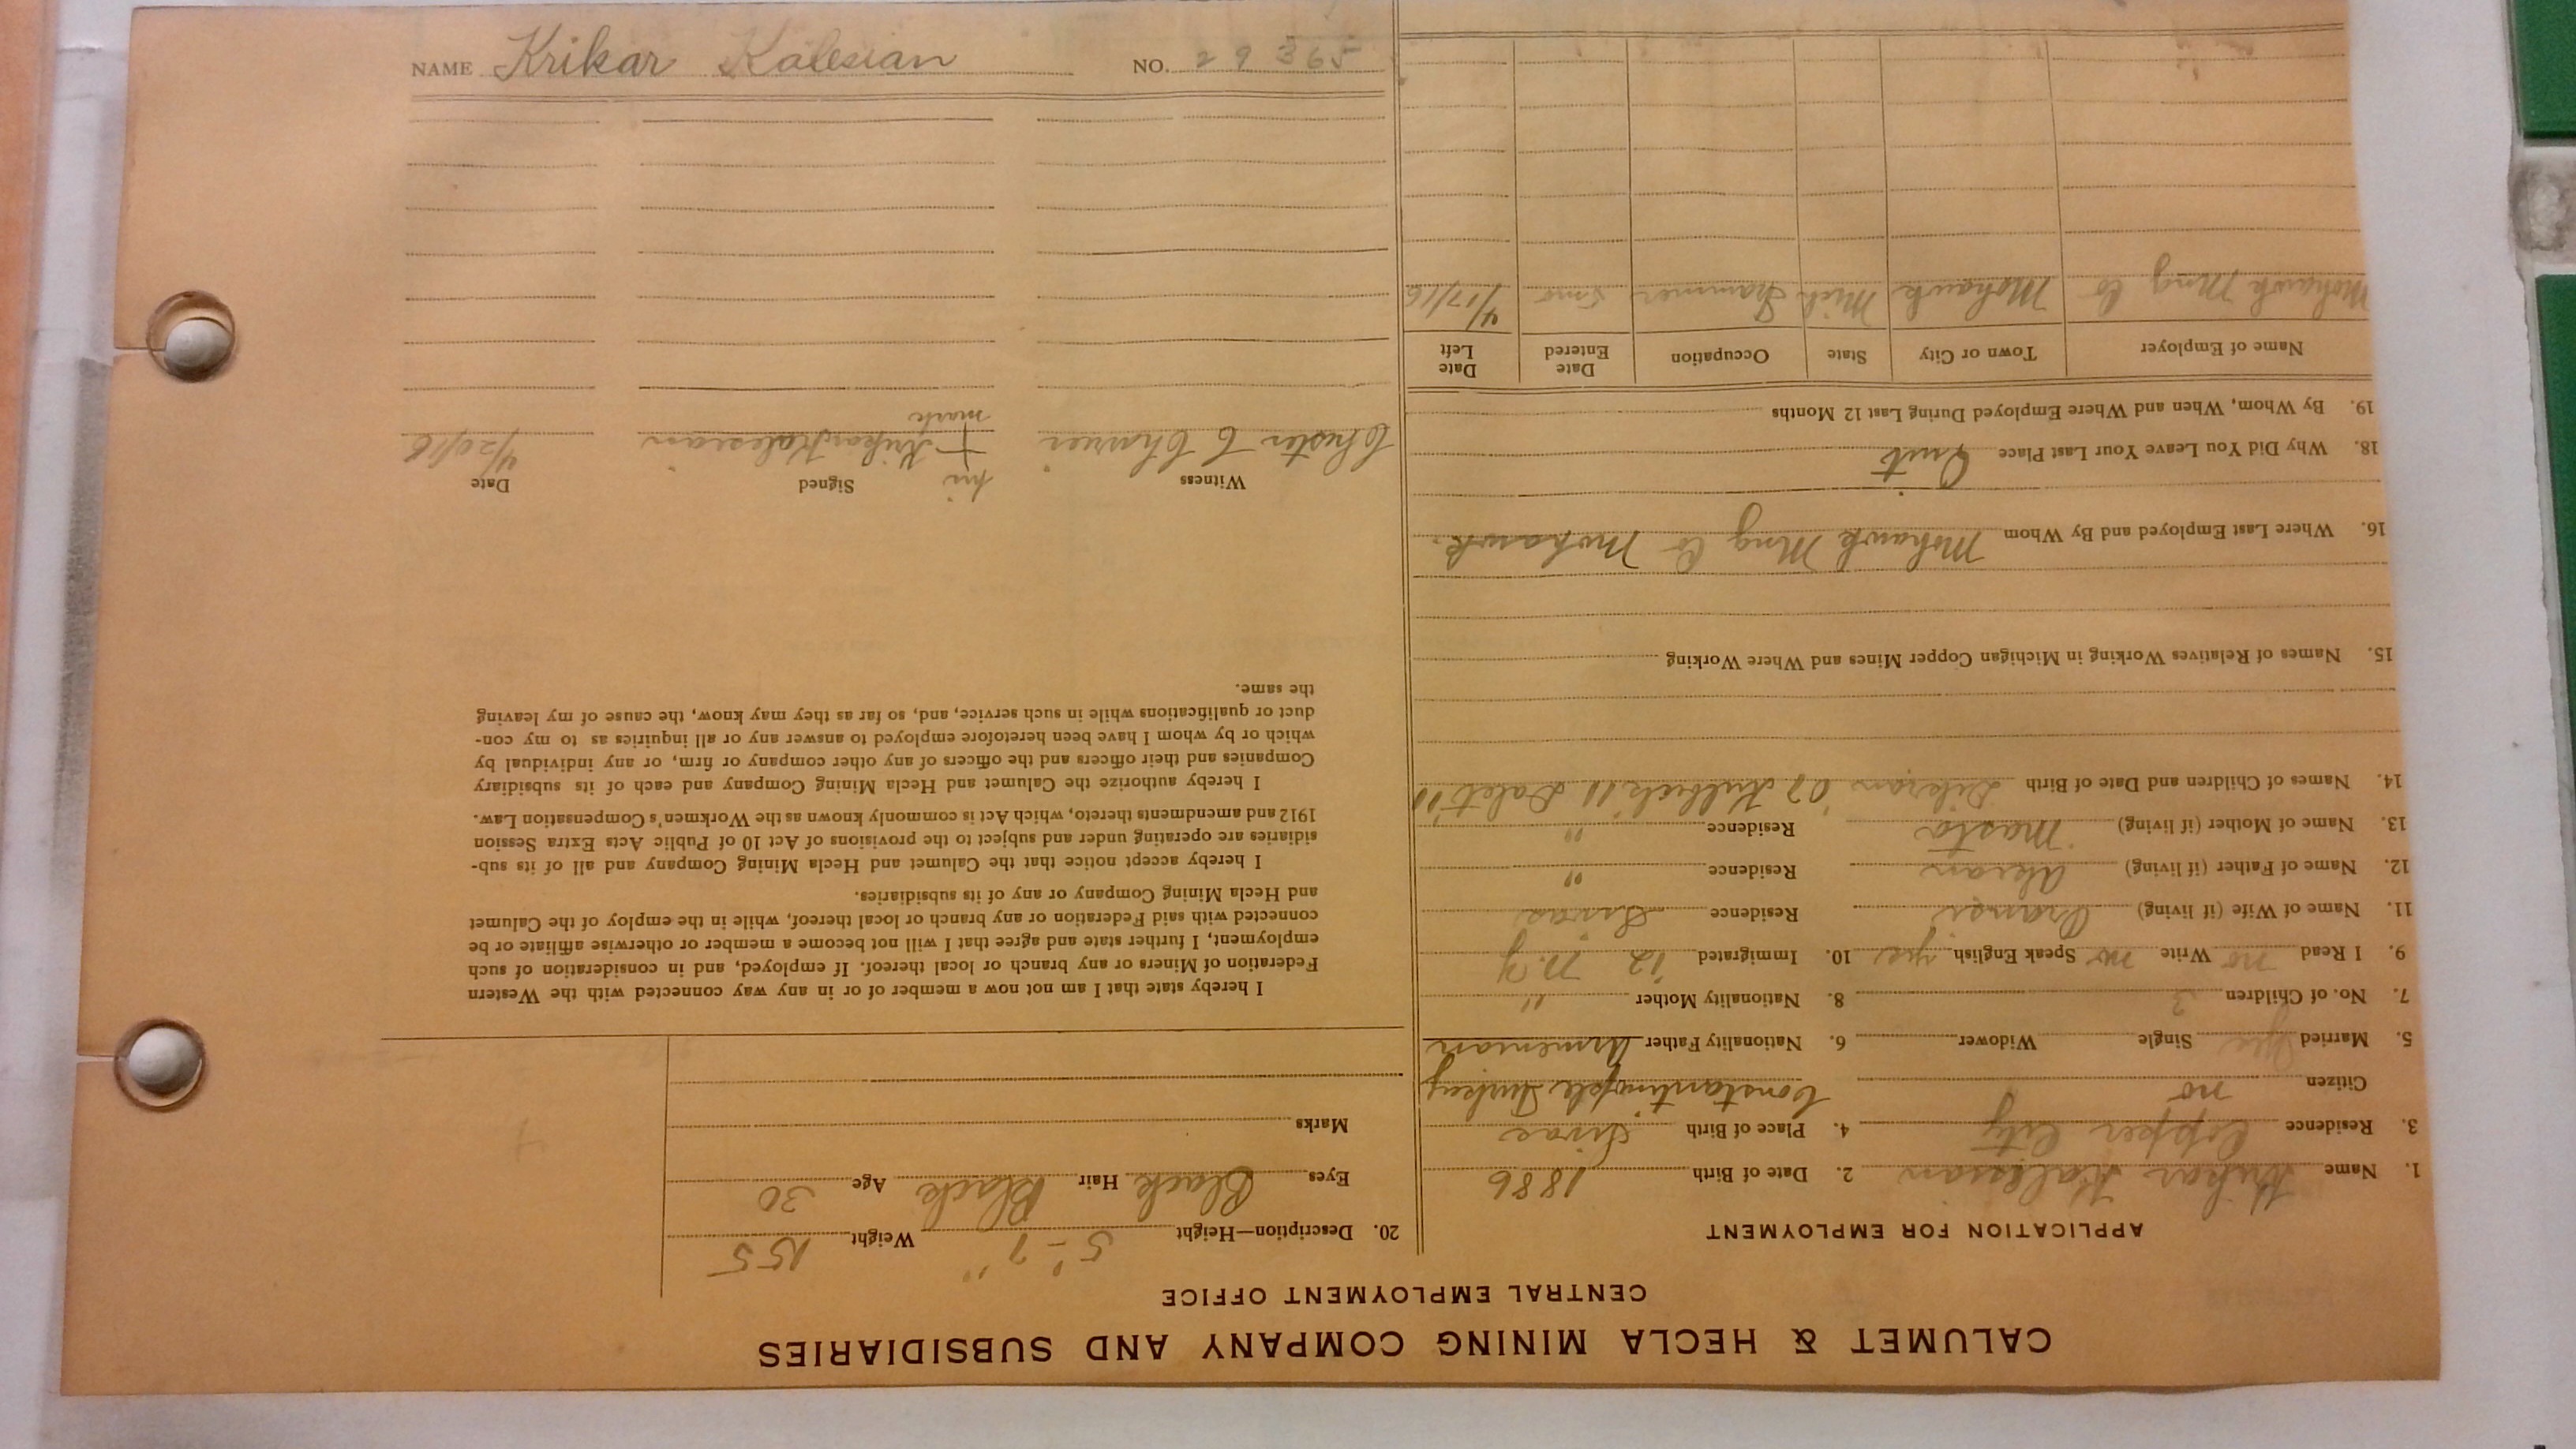 CALUMET & HECLA MINING COMPANY AND SUBSIDIARIES
CENTRAL EMPLOYMENT OFFICE
APPLICATION FOR EMPLOYMENT
1. Name Krikar Kalesian 2. Date of Birth 1886
3. Residence Copper City 4. Place of Birth Sivas
Citizen no Constantinople Turkey
5. Married yes Single Widower 6. Nationality Father Armenian
7. No. of Children 3 8. Nationality Mother "
9. I Read no Write no Speak English yes 10. Immigrated '12 N.Y
11. Name of Wife (if living) Residence Sivas
12. Name of Father (if living) Residence "
13. Name of Mother (if living) Masta Residence "
14. Names of Children and Date of Birth Dikran '07 '11 '11
15. Names of Relatives Working in Michigan Copper Mines and Where Working
16. Where Last Employed and By Whom Mohawk Mng Co Mohawk.
18. Why Did You Leave Your Last Place Quit
19. By Whom, When and Where Employed During Last 12 Months
Name of Employer Town or City State Occupation Date Entered Date Left
Mohawk Mng Co Mohawk Mich Trammer 5 mo 4/17/16
20. Description—Height 5'-7" Weight 155
Eyes Black Hair Black Age 30
Marks
I hereby state that I am not now a member of or in any way connected with the Western
Federation of Miners or any branch or local thereof. If employed, and in consideration of such
employment, I further state and agree that I will not become a member or otherwise affiliate or be
connected with said Federation or any branch or local thereof, while in the employ of the Calumet
and Hecla Mining Company or any of its subsidiaries.
I hereby accept notice that the Calumet and Hecla Mining Company and all of its sub-
sidiaries are operating under and subject to the provisions of Act 10 of Public Acts Extra Session
1912 and amendments thereto, which Act is commonly known as the Workmen's Compensation Law.
I hereby authorize the Calumet and Hecla Mining Company and each of its subsidiary
Companies and their officers and the officers of any other company or firm, or any individual by
which or by whom I have been heretofore employed to answer any or all inquiries as to my con-
duct or qualifications while in such service, and, so far as they may know, the cause of my leaving
the same.
Witness Signed Date
his
Chester C + Krikar Kalesian 4/20/16
mark
NAME Krikar Kalesian NO. 29365